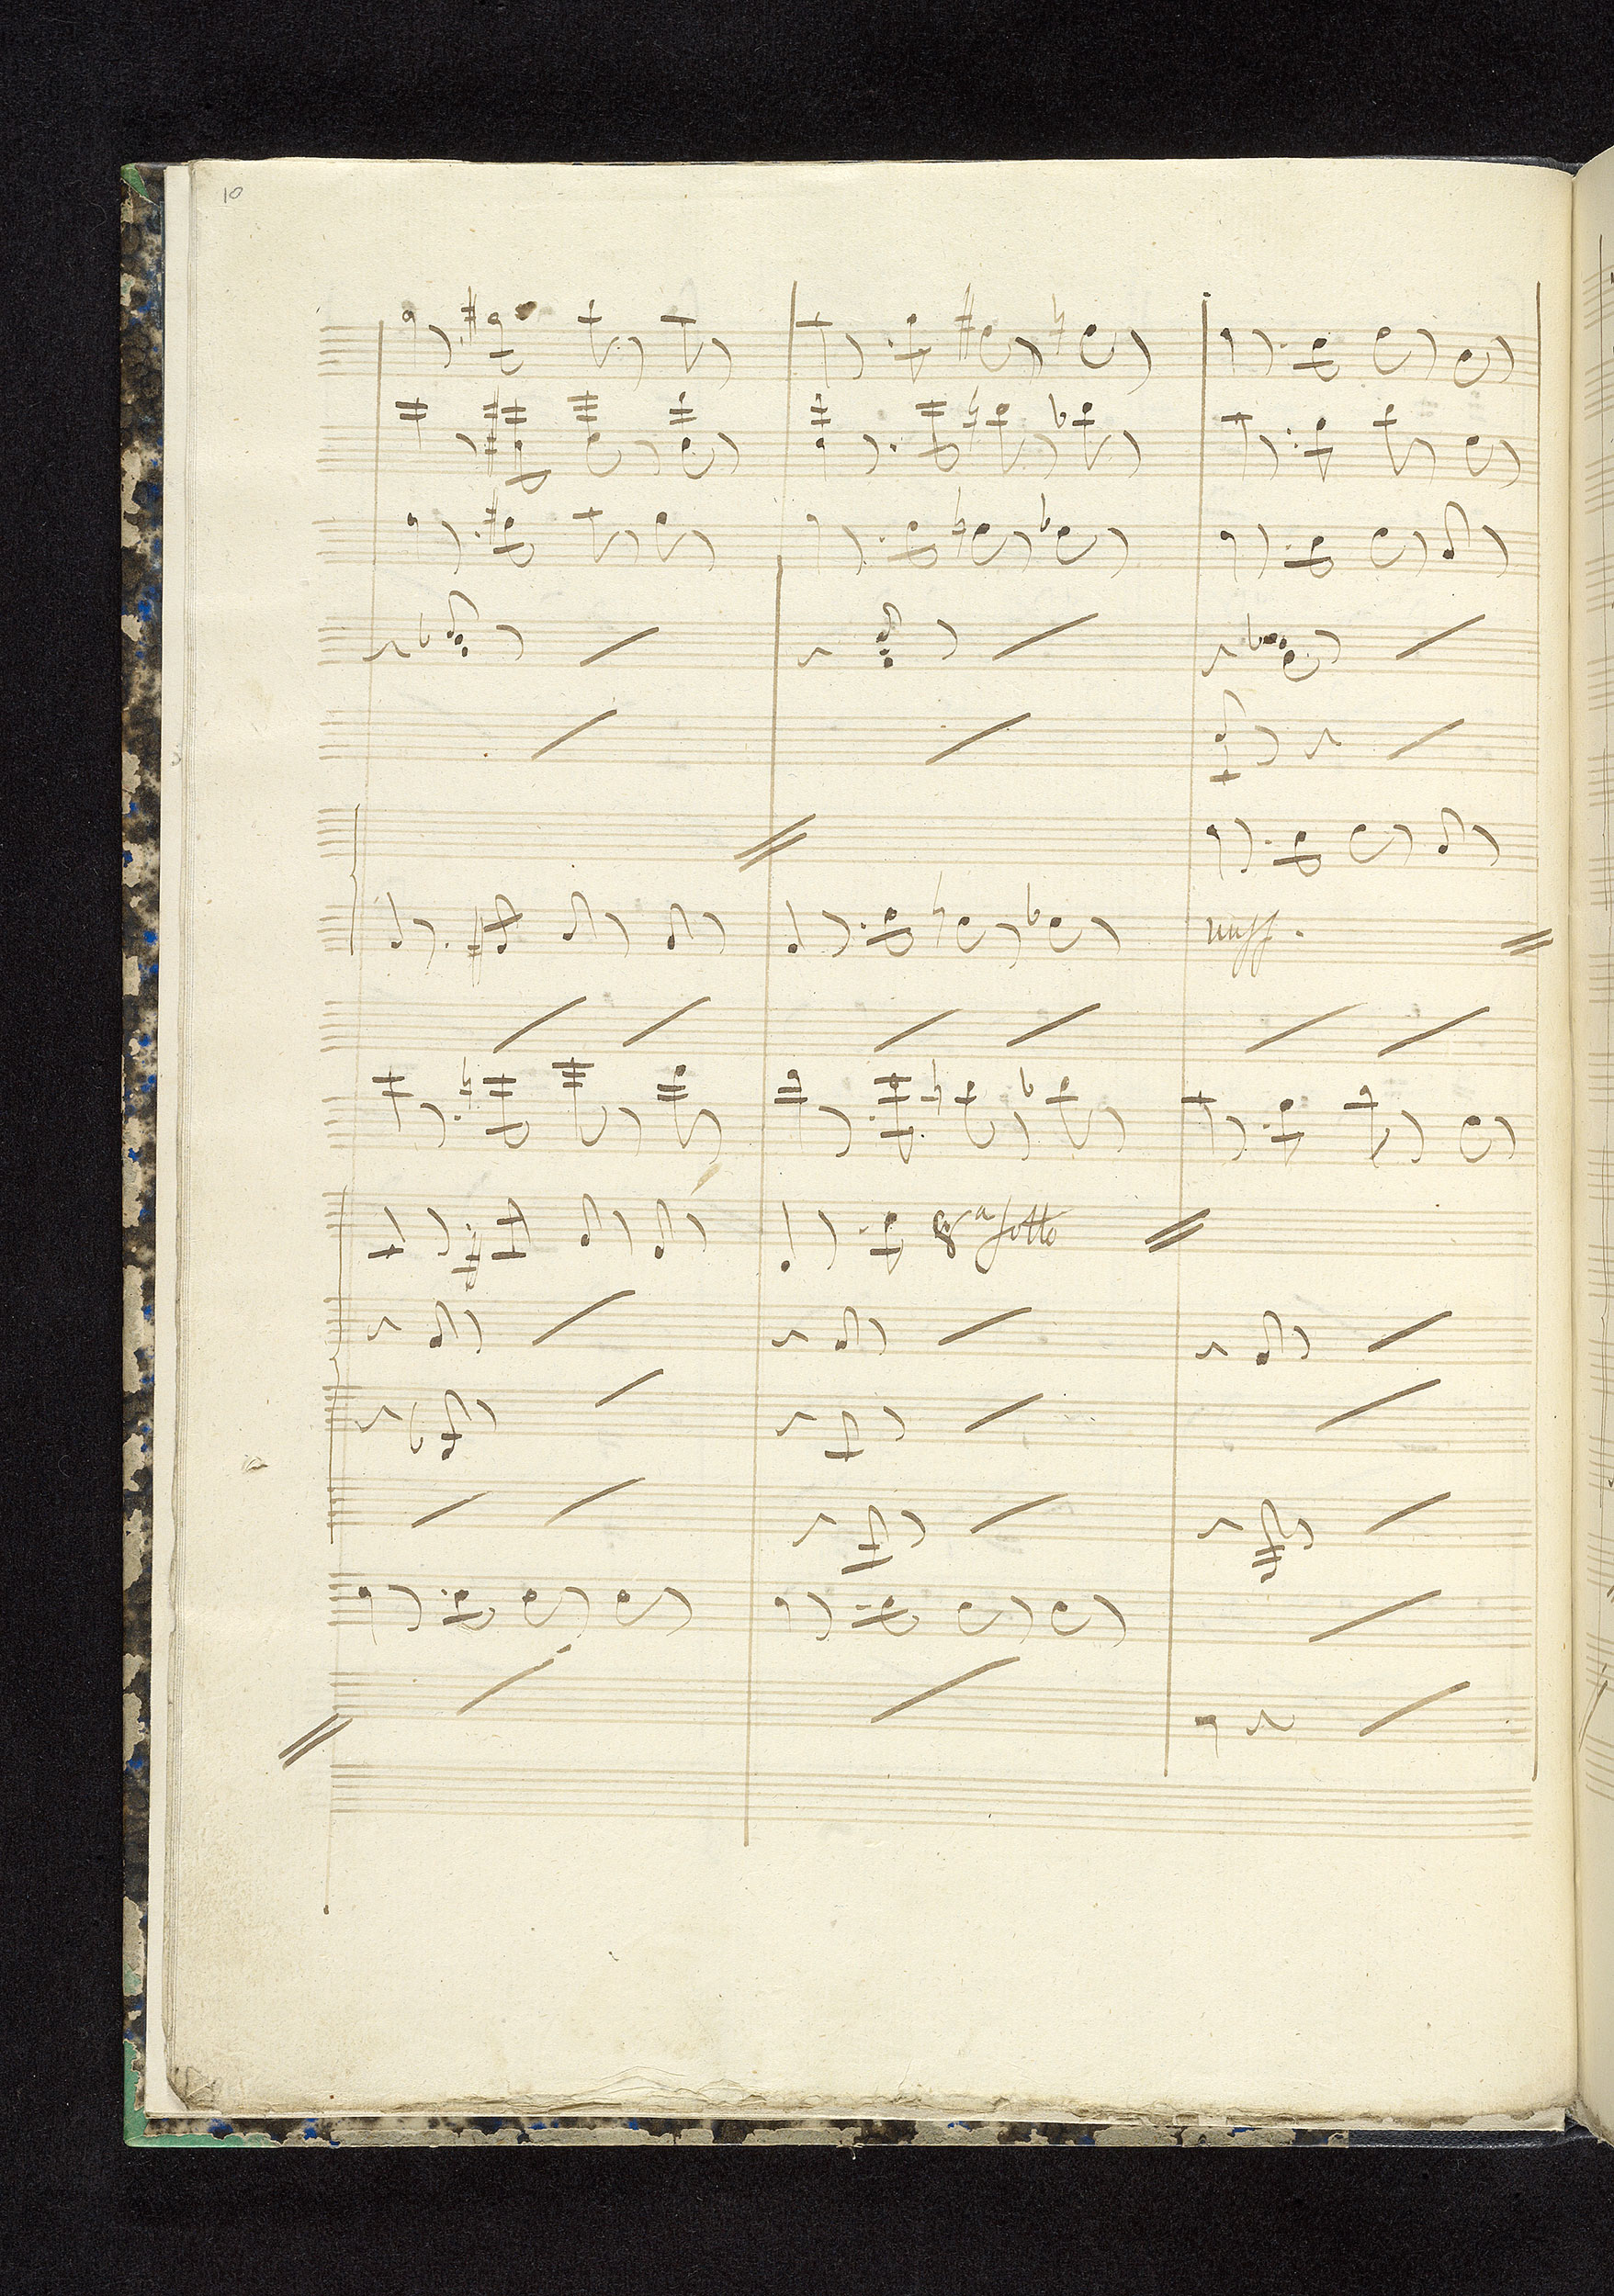 10
unis.
8va sotto